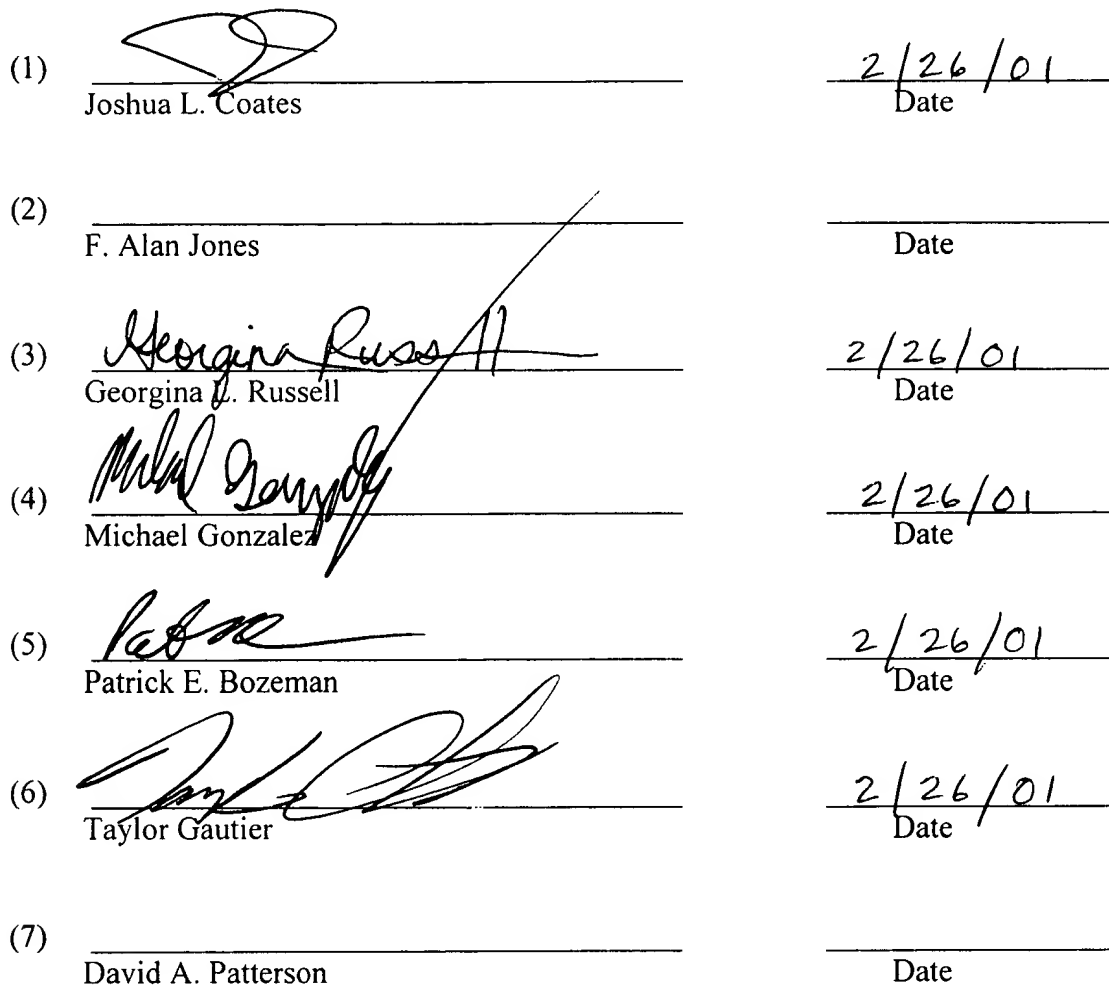 (1) 2/26/01
Joshua L. Coates Date
(2)
F. Alan Jones Date
(3) Georgina Russell 2/26/01
Georgina L. Russell Date
(4) Michael Gonzalez 2/26/01
Michael Gonzalez Date
(5) 2/26/01
Patrick E. Bozeman Date
(6) 2/26/01
Taylor Gautier Date
(7)
David A. Patterson Date